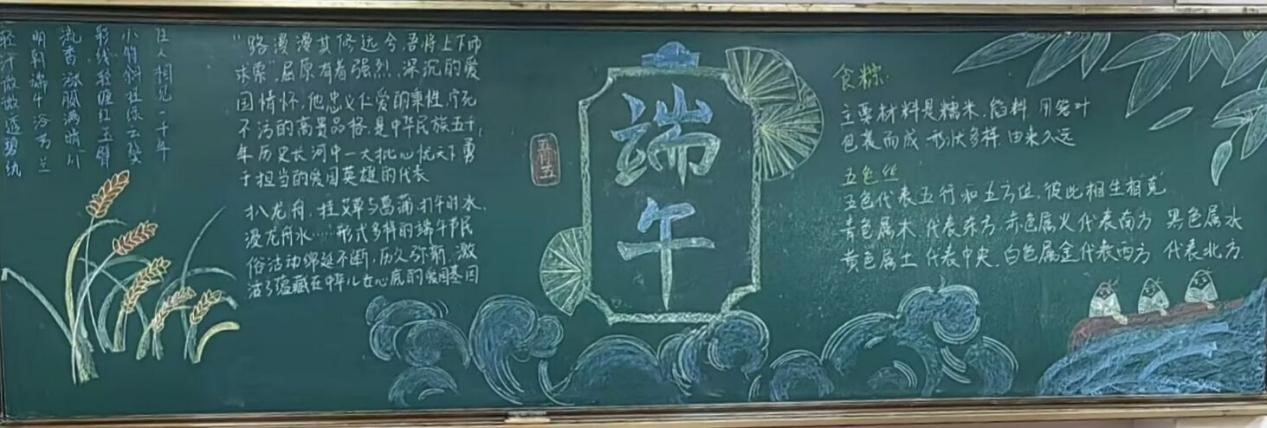 轻汗微微透碧纨
明朝端午浴芳兰
流香涨腻满晴川
彩线轻缠红玉臂
小符斜挂绿云鬟
佳人相见一千年
“路漫漫其修远兮，吾将上下而
求索”，屈原有着强烈、深沉的爱
国情怀，他忠义仁爱的秉性，宁死
不活的高贵品格，是中华民族五千
年历史长河中一大批心忧天下勇
于担当的爱国英雄的代表
扒龙舟，挂艾草与菖蒲，打午时水，
浸龙舟水……形式多样的端午节民
俗活动绵延不断，历久弥新，激
活了蕴藏在中华儿女心底的爱国基因
五月五
端午
食粽
主要材料是糯米、馅料，用箬叶
包裹而成，形状多样，由来久远
五色丝
五色代表五行和五方位，彼此相生相克
青色属木 代表东方，赤色属火代表南方 黑色属水
黄色属土 代表中央，白色属金代表西方 代表北方